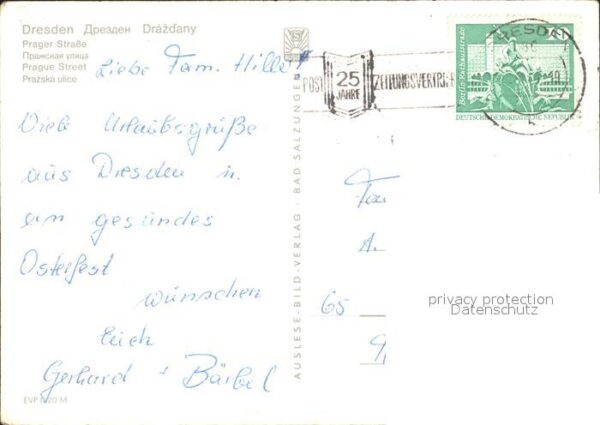 Dresden Дрезден Drážďany
Prager Straße
Пражская улица
Prague Street
Pražská ulice
Liebe Fam. Hille!
Viele Urlaubsgrüße
aus Dresden u.
ein gesundes
Osterfest
wünschen
Euch
Gerhard + Bärbel
EVP 0,20 M
AUSLESE-BILD-VERLAG · BAD SALZUNGEN
POST 25 JAHRE ZEITUNGSVERTRI
DRESDEN
Berlin, Rathausstraße
10
DEUTSCHE DEMOKRATISCHE REPUBLIK
Fam
65
privacy protection
Datenschutz